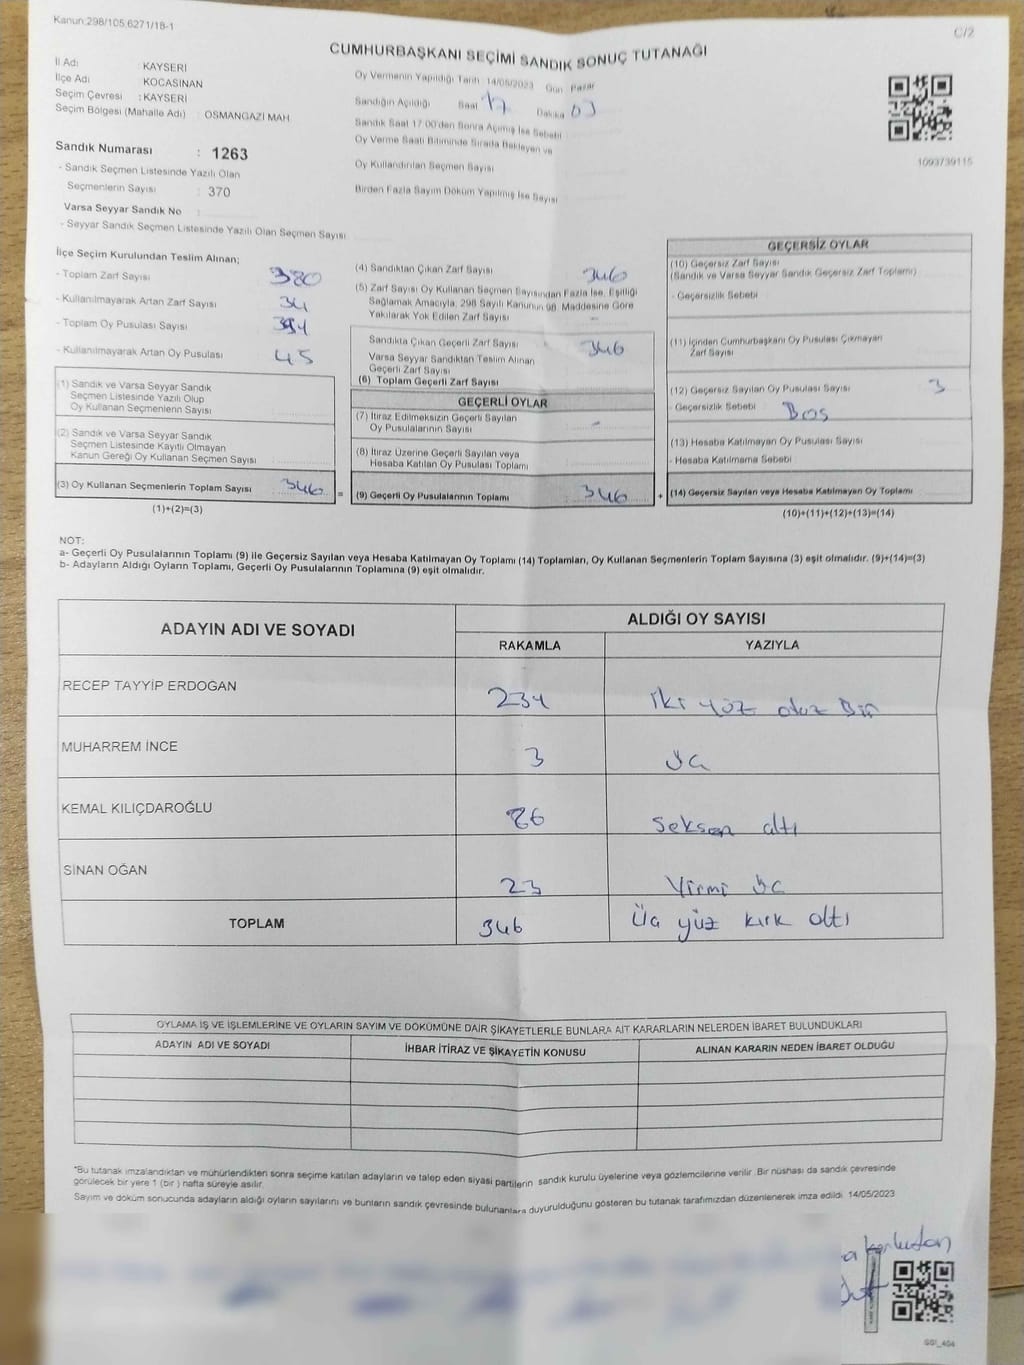 Kanun:298/105,6271/18-1
C/2
CUMHURBAŞKANI SEÇİMİ SANDIK SONUÇ TUTANAĞI
İl Adı : KAYSERİ
İlçe Adı : KOCASİNAN
Seçim Çevresi : KAYSERİ
Seçim Bölgesi (Mahalle Adı) : OSMANGAZİ MAH.
Sandık Numarası : 1263
- Sandık Seçmen Listesinde Yazılı Olan
Seçmenlerin Sayısı : 370
Varsa Seyyar Sandık No :
- Seyyar Sandık Seçmen Listesinde Yazılı Olan Seçmen Sayısı
Oy Vermenin Yapıldığı Tarih 14/05/2023 Gün Pazar
Sandığın Açıldığı Saat 17 Dakika
Sandık Saat 17:00'den Sonra Açılmış İse Sebebi
Oy Verme Saati Bitiminde Sırada Bekleyen ve
Oy Kullandırılan Seçmen Sayısı
Birden Fazla Sayım Döküm Yapılmış İse Sayısı
1093739115
İlçe Seçim Kurulundan Teslim Alınan;
- Toplam Zarf Sayısı 380
- Kullanılmayarak Artan Zarf Sayısı 34
- Toplam Oy Pusulası Sayısı
- Kullanılmayarak Artan Oy Pusulası 45
(1) Sandık ve Varsa Seyyar Sandık
Seçmen Listesinde Yazılı Olup
Oy Kullanan Seçmenlerin Sayısı
(2) Sandık ve Varsa Seyyar Sandık
Seçmen Listesinde Kayıtlı Olmayan
Kanun Gereği Oy Kullanan Seçmen Sayısı
(3) Oy Kullanan Seçmenlerin Toplam Sayısı 346 =
(1)+(2)=(3)
(4) Sandıktan Çıkan Zarf Sayısı 346
(5) Zarf Sayısı Oy Kullanan Seçmen Sayısından Fazla İse, Eşitliği
Sağlamak Amacıyla, 298 Sayılı Kanunun 98. Maddesine Göre
Yakılarak Yok Edilen Zarf Sayısı -
Sandıkta Çıkan Geçerli Zarf Sayısı 346
Varsa Seyyar Sandıktan Teslim Alınan
Geçerli Zarf Sayısı
(6) Toplam Geçerli Zarf Sayısı
GEÇERLİ OYLAR
(7) İtiraz Edilmeksizin Geçerli Sayılan
Oy Pusulalarının Sayısı -
(8) İtiraz Üzerine Geçerli Sayılan veya
Hesaba Katılan Oy Pusulası Toplamı
(9) Geçerli Oy Pusulalarının Toplamı 346 +
GEÇERSİZ OYLAR
(10) Geçersiz Zarf Sayısı
(Sandık ve Varsa Seyyar Sandık Geçersiz Zarf Toplamı)
- Geçersizlik Sebebi
(11) İçinden Cumhurbaşkanı Oy Pusulası Çıkmayan
Zarf Sayısı
(12) Geçersiz Sayılan Oy Pusulası Sayısı 3
- Geçersizlik Sebebi Boş
(13) Hesaba Katılmayan Oy Pusulası Sayısı
- Hesaba Katılmama Sebebi
(14) Geçersiz Sayılan veya Hesaba Katılmayan Oy Toplamı
(10)+(11)+(12)+(13)=(14)
NOT:
a- Geçerli Oy Pusulalarının Toplamı (9) ile Geçersiz Sayılan veya Hesaba Katılmayan Oy Toplamı (14) Toplamları, Oy Kullanan Seçmenlerin Toplam Sayısına (3) eşit olmalıdır. (9)+(14)=(3)
b- Adayların Aldığı Oyların Toplamı, Geçerli Oy Pusulalarının Toplamına (9) eşit olmalıdır.
ADAYIN ADI VE SOYADI
ALDIĞI OY SAYISI
RAKAMLA YAZIYLA
RECEP TAYYİP ERDOĞAN 231 iki yüz otuz Bir
MUHARREM İNCE 3 üç
KEMAL KILIÇDAROĞLU 86 Seksen altı
SİNAN OĞAN 23 Yirmi üç
TOPLAM 346 Üç yüz kırk altı
OYLAMA İŞ VE İŞLEMLERİNE VE OYLARIN SAYIM VE DÖKÜMÜNE DAİR ŞİKAYETLERLE BUNLARA AİT KARARLARIN NELERDEN İBARET BULUNDUKLARI
ADAYIN ADI VE SOYADI İHBAR İTİRAZ VE ŞİKAYETİN KONUSU ALINAN KARARIN NEDEN İBARET OLDUĞU
*Bu tutanak imzalandıktan ve mühürlendikten sonra seçime katılan adayların ve talep eden siyasi partilerin sandık kurulu üyelerine veya gözlemcilerine verilir. Bir nüshası da sandık çevresinde
görülecek bir yere 1 (bir) hafta süreyle asılır.
Sayım ve döküm sonucunda adayların aldığı oyların sayılarını ve bunların sandık çevresinde bulunanlara duyurulduğunu gösteren bu tutanak tarafımızdan düzenlenerek imza edildi. 14/05/2023